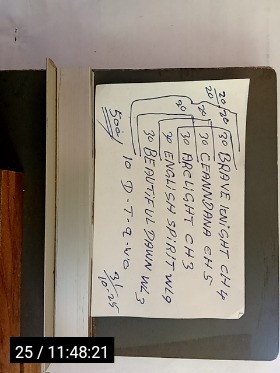 20/20/30 BRAVE KNIGHT CH4
20
20 30 CEANNDANA CH5
30 ARCLIGHT CH3
20 30 ENGLISH SPIRIT WL9
30 BEAUTIFUL DAWN WL3
10 D-T-Q
500
25 / 11:48:21